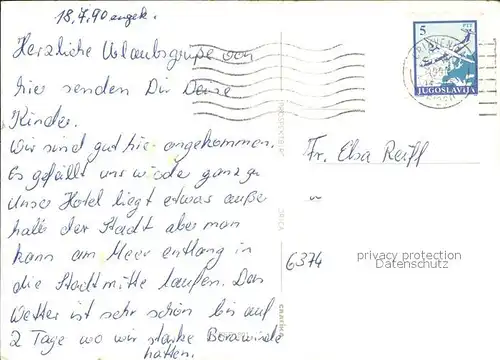 18.7.90 angek.
Herzliche Urlaubsgrüße von
hier senden Dir Deine
Kinder.
Wir sind gut hier angekommen.
Es gefällt uns wieder ganz gut
Unser Hotel liegt etwas außer
halb der Stadt aber man
kann am Meer entlang in
die Stadtmitte laufen. Das
Wetter ist sehr schön bis auf
2 Tage wo wir starke Borawinde
hatten.
5
PTT
JUGOSLAVIJA
Fr. Elsa Reiff
6374
privacy protection
Datenschutz